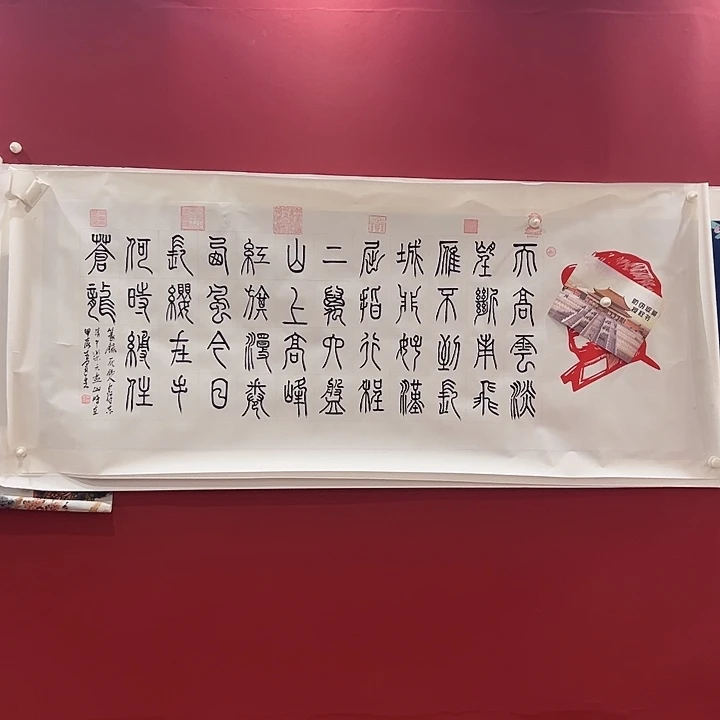 天高雲淡
望斷南飛
雁不到長
城非好漢
屈指行程
二萬六盤
山上高峰
紅旗漫卷
西風今日
長纓在手
何時縛住
蒼龍
甲辰